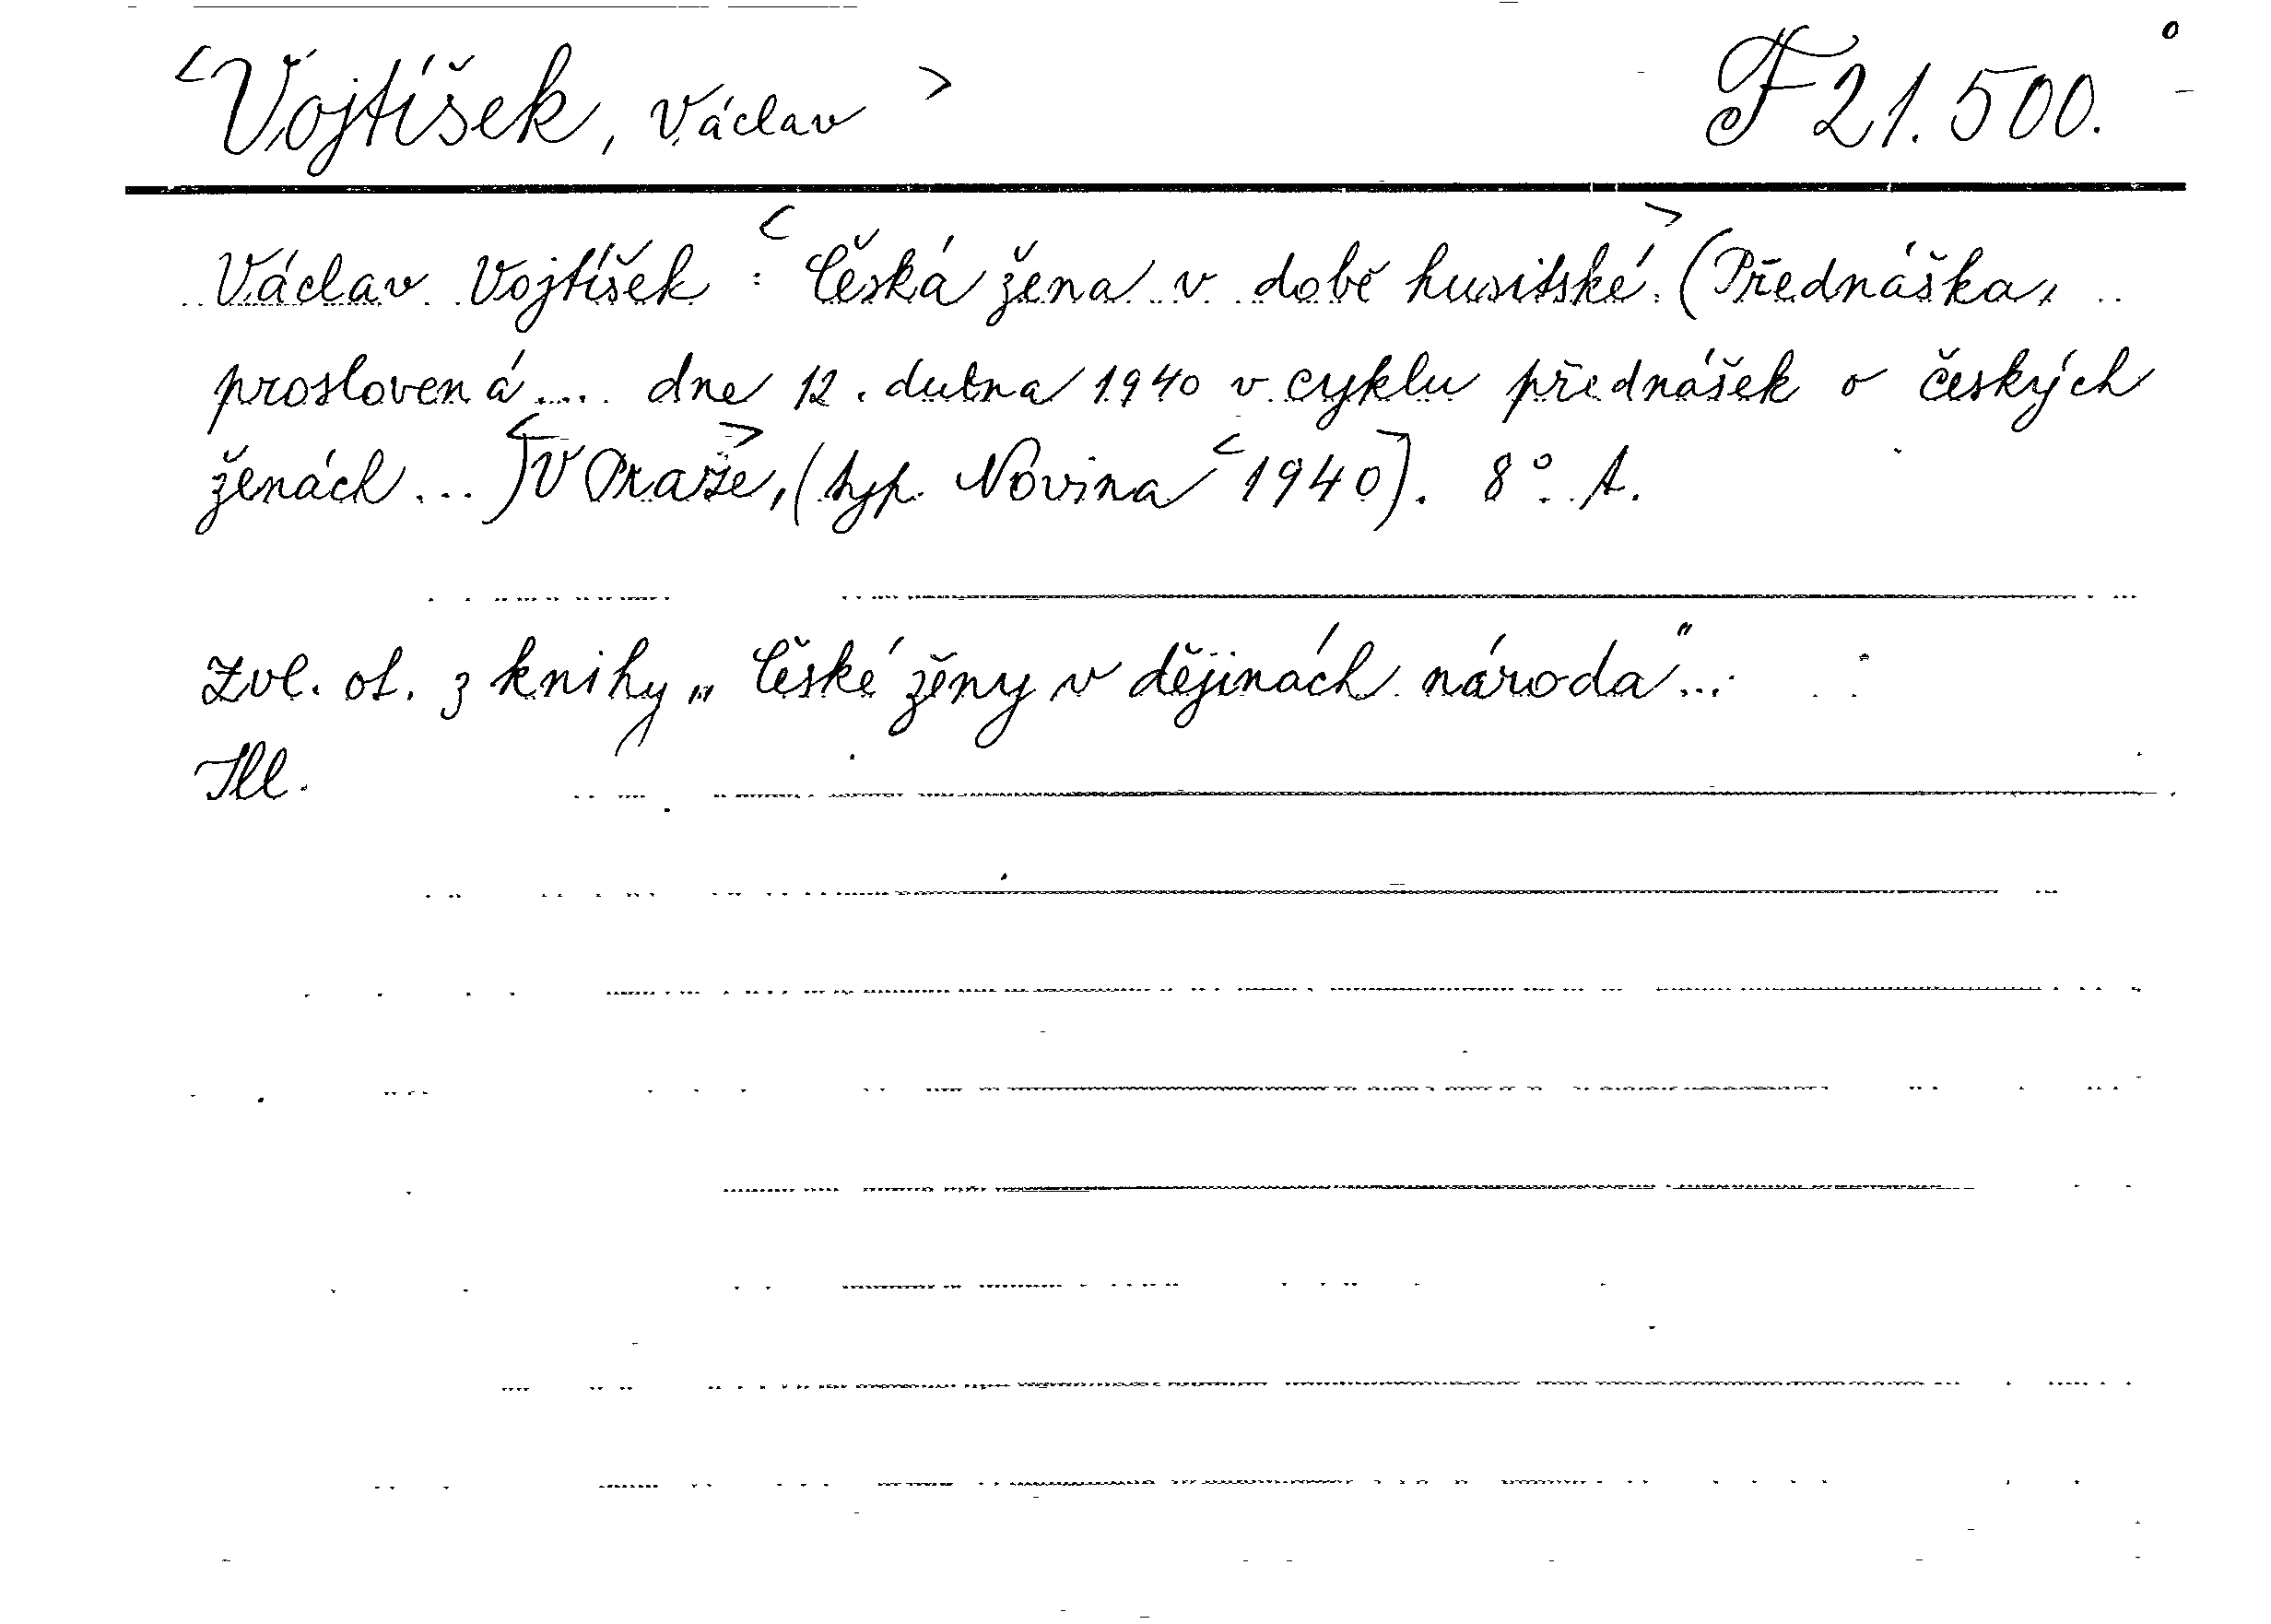 <Vojtíšek, Václav> F 21.500.
Václav Vojtíšek : <Česká žena v době husitské>. (Přednáška,
proslovená .... dne 12. dubna 1940 v cyklu přednášek o českých
ženách ... ) <V Praze>, (typ. Novina <1940>). 8°. A.
Zvl. ot. z knihy „České ženy v dějinách národa“...
Ill.